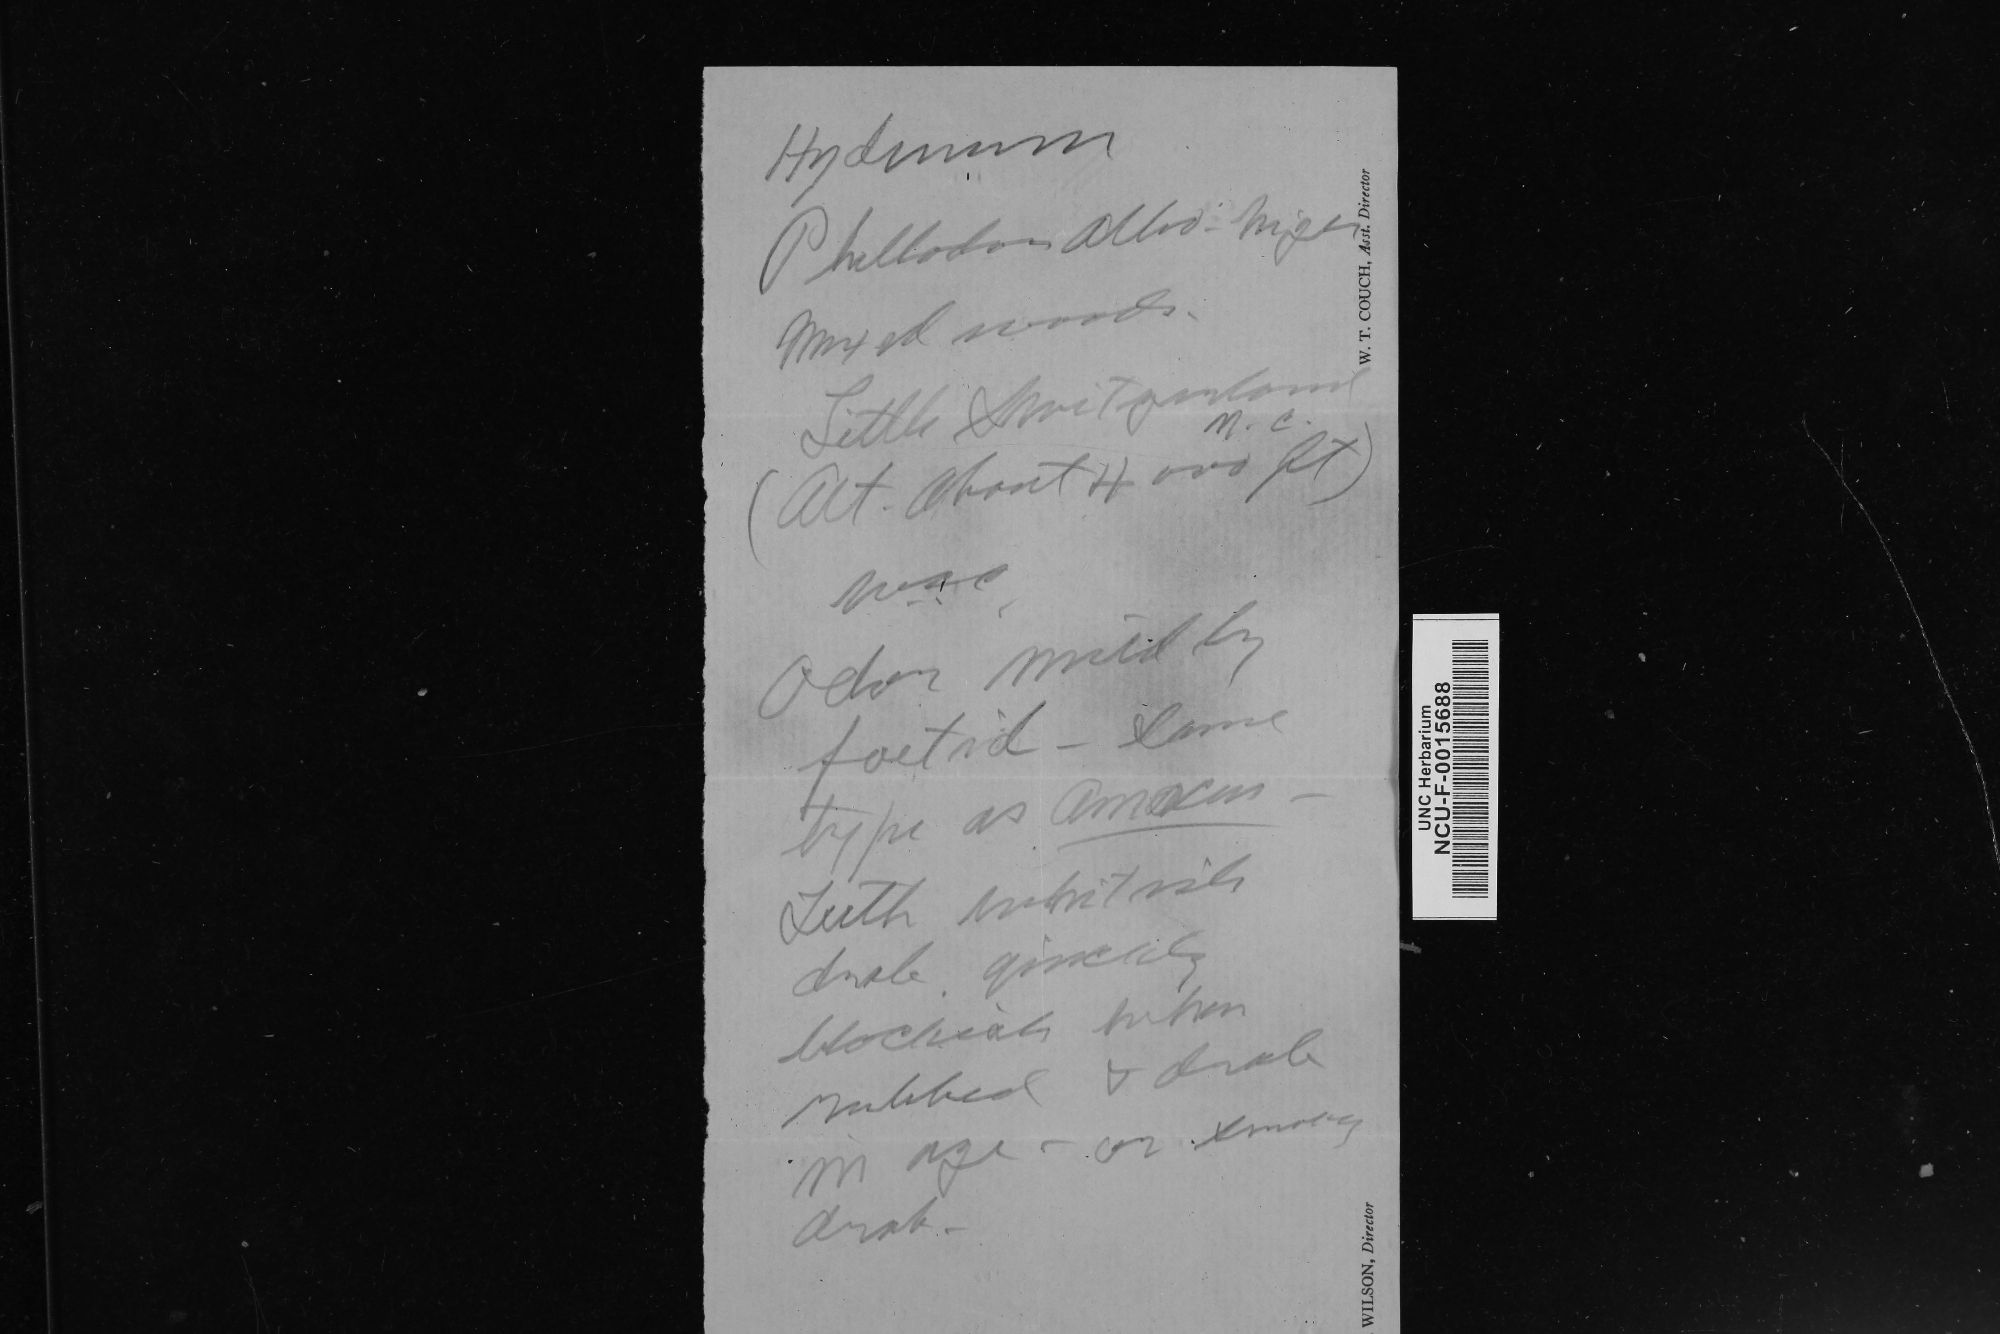 Hydnum
Phellodon albo-niger
Mixed woods.
Little Switzerland
N.C.
(Alt. about 4000 ft)
WCC
Odor mildly
foetid - same
type as amicus -
Teeth whitish
drab quickly
blackish when
rubbed & drab
in age - or smoky
drab -
W. T. COUCH, Asst. Director
WILSON, Director
UNC Herbarium
NCU-F-0015688